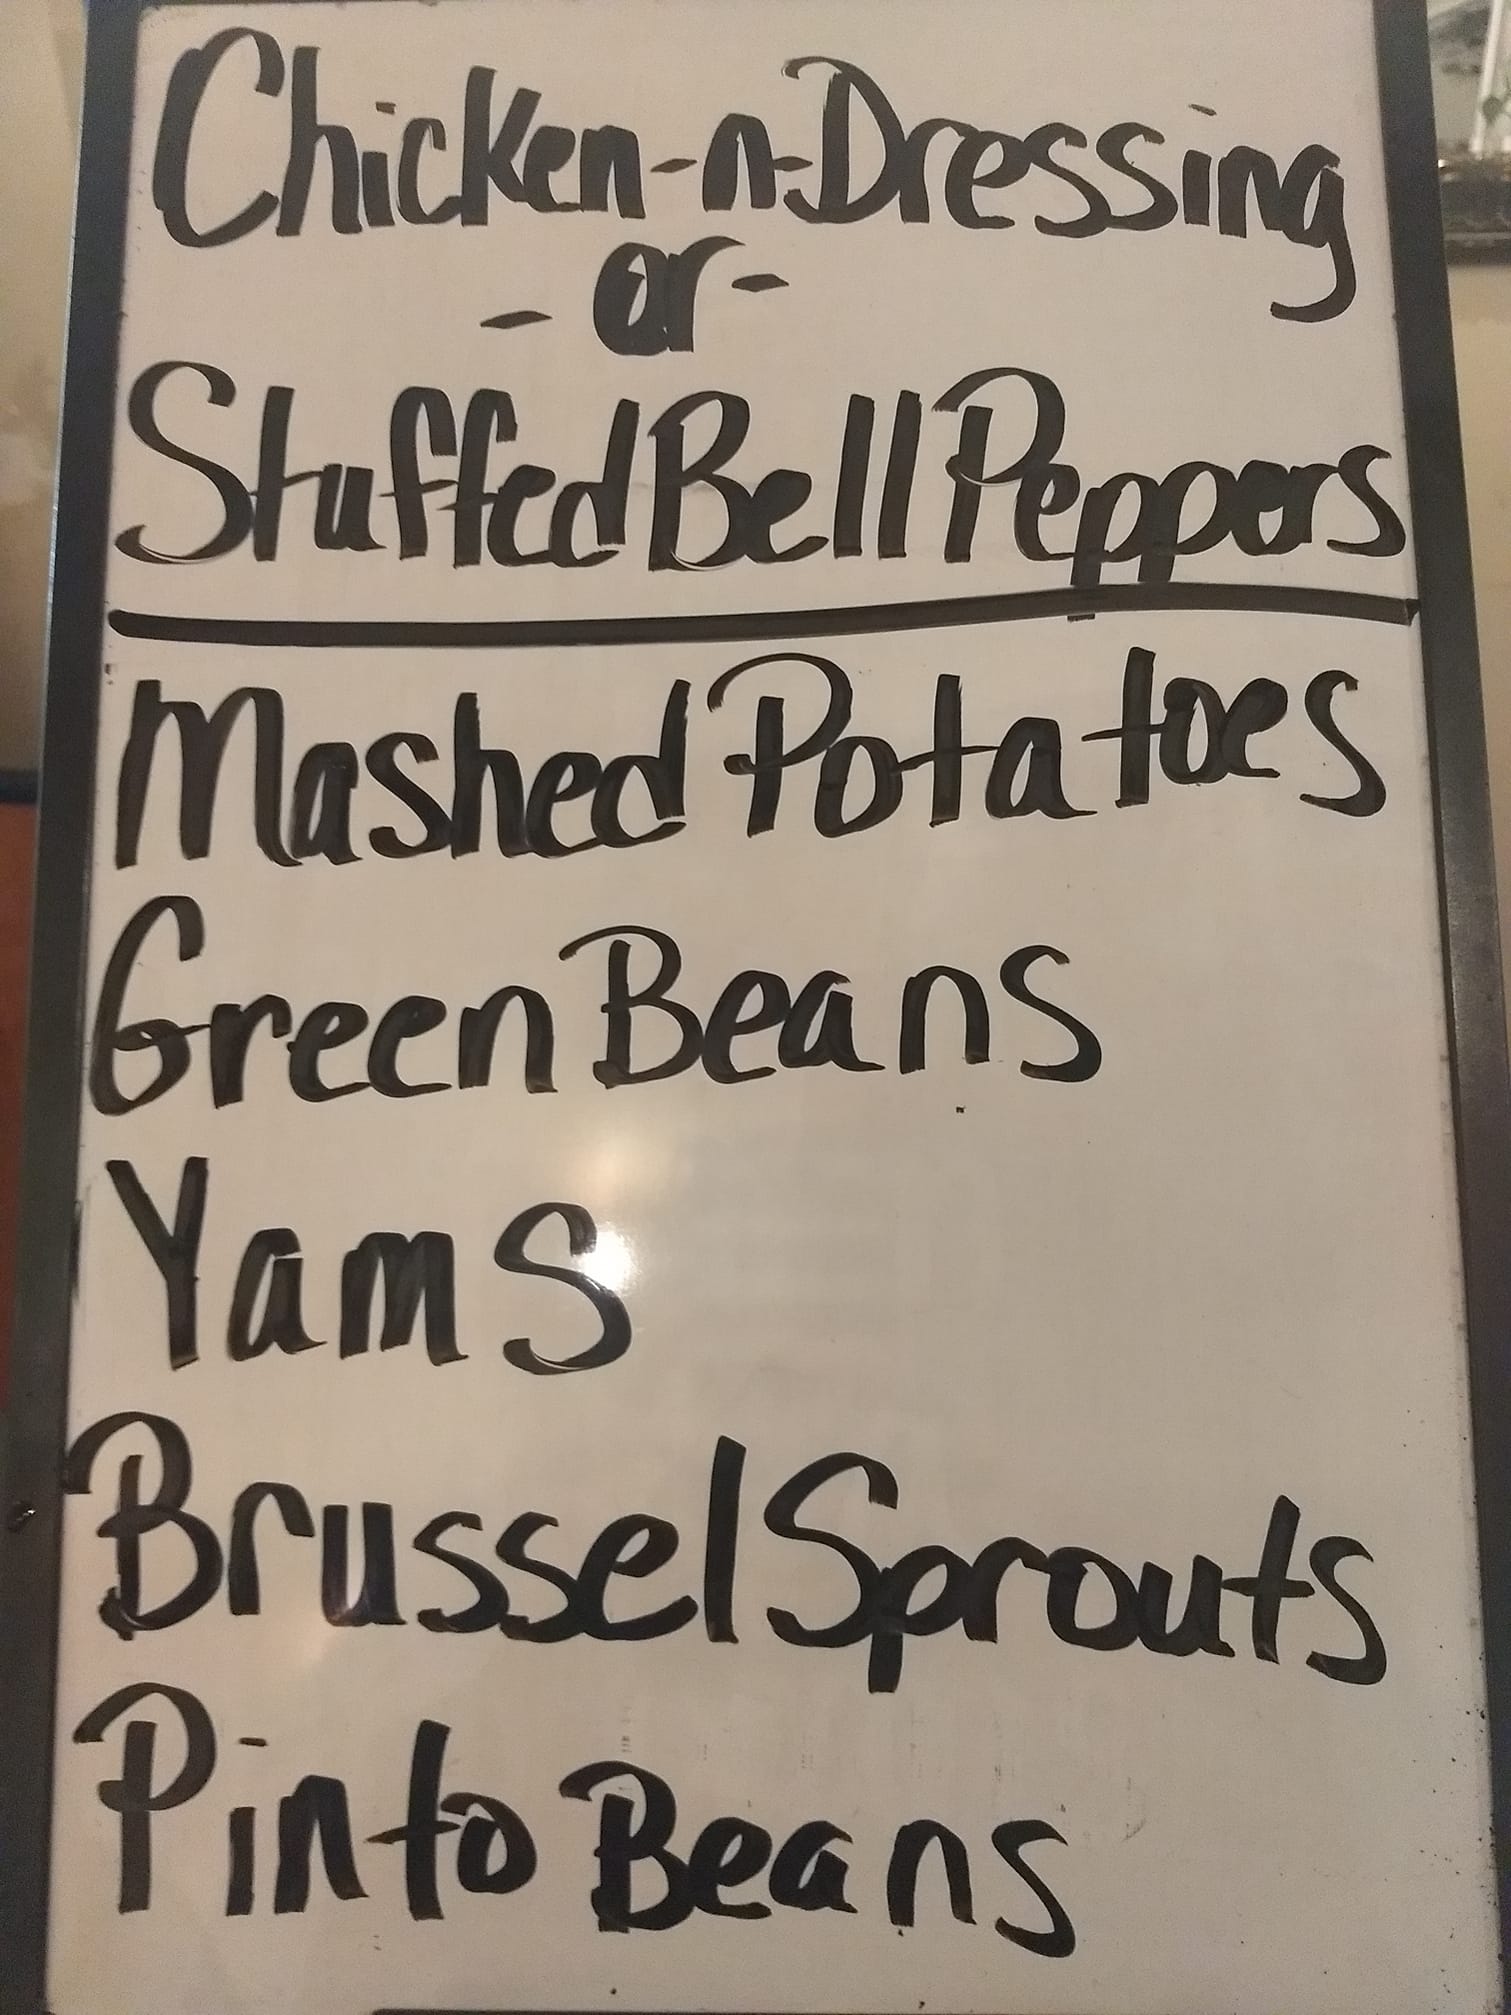 Chicken-n-Dressing
-or-
Stuffed Bell Peppers
Mashed Potatoes
Green Beans
Yams
Brussel Sprouts
Pinto Beans